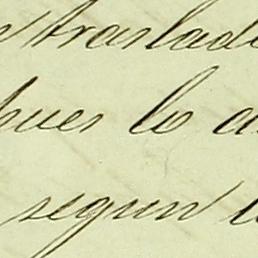 traslad
pues lo a
segun